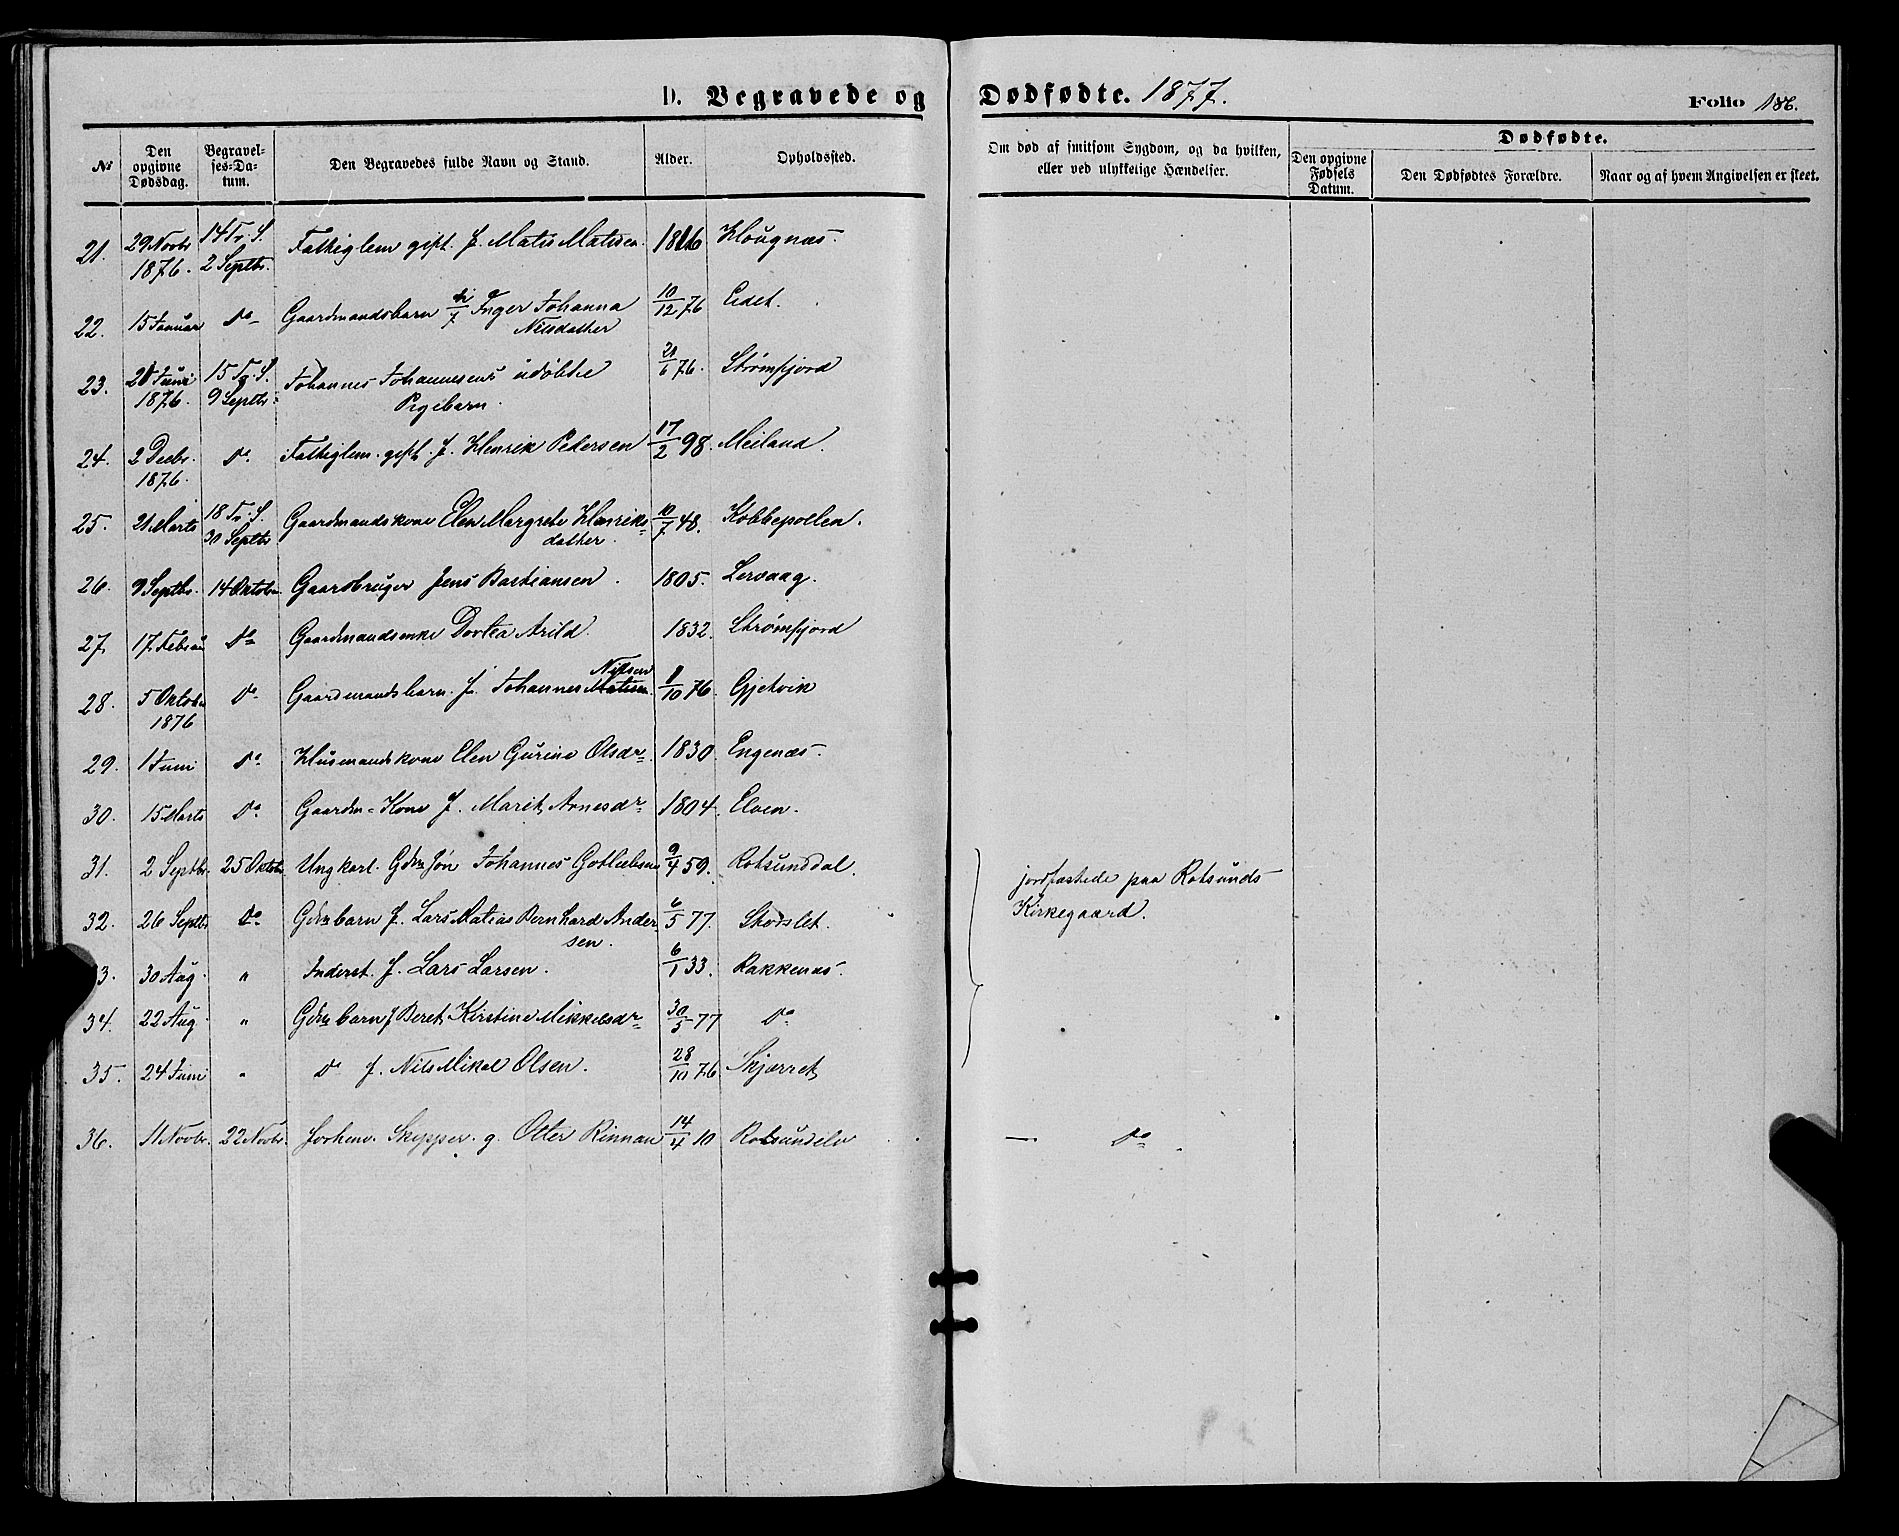 D. Begravede og Dødfødte. 1877.
Folio 186.
No
Den opgivne Dødsdag.
Begravelses-Datum.
Den Begravedes fulde Navn og Stand.
Alder.
Opholdssted.
Om død af smitsom Sygdom, og da hvilken, eller ved ulykkelige Hændelser.
Dødfødte.
Den opgivne Fødsels Datum.
Den Dødfødtes Forældre.
Naar og af hvem Angivelsen er skeet.
21. 29 Novbr 1876. 14 Tr. S. 2 Septbr. Fattiglem gift. f. Matis Matisen. 1816 Hougnæs.
22. 15 Januar do Gaardmandsbarn Inger Johanna Nilsdather 10/12 76 Eidet.
23. 28 Juni 1876. 15 Tr. S. 9 Septbr. Johannes Johannesens udøbte Pigebarn. 21/6 76. Strømfjord
24. 2 Decbr. 1876. do Fattiglem. gift. f. Henrik Pedersen 17/2 98. Meiland.
25. 21 Marts 18 Tr. S. 30 Septbr Gaardmandskone Elen Margrete Henriksdather. 10/7 48. Kobbepollen.
26. 9 Septbr. 14 Oktober Gaardbruger Jens Bastiansen. 1805. Lervaag.
27. 17 Februar do Gaardmandsenke Dortea Arild. 1832. Strømfjord
28. 5 Oktober 1876 do Gaardmandsbarn. f. Johannes Nilsen 8/10 76 Gjetvik
29. 1 Juni do Husmandskone Elen Gurine Olsdr 1830. Engenæs.
30. 15 Marts do Gaardm-Kone f. Marit Arnesdr 1804. Elven.
31. 2 Septbr. 25 Oktober Ungkarl. Gdm Søn Johannes Gotliebsen 9/4 59. Rotsunddal.
32. 26 Septbr do Gdm barn f. Lars Matias Bernhard Andersen. 6/5 77. Skovslet.
jordfæstede paa Rotsunds Kirkegaard.
3. 30 Aug. " Inderst. f. Lars Larsen. 6/1 33. Rakkenæs.
34. 22 Aug. " Gdm barn f Beret Kirstine Mikkelsdr 30/5 77 do
35. 24 Juni " do f. Nils Mikal Olsen. 28/10 76 Skjærret
36. 11 Novbr. 22 Novbr. Skipper. g. Otter Rinnan 14/4 10 Rotsundelv — do